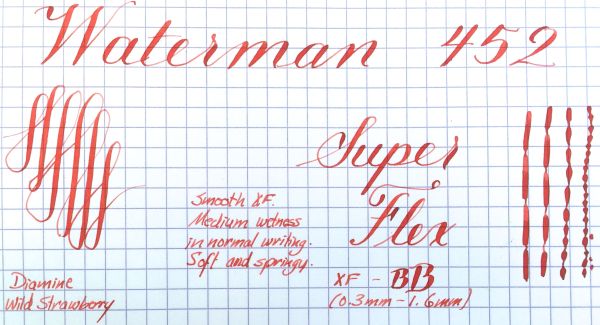 Waterman 452
Super
Flex
Smooth XF.
Medium wetness
in normal writing.
Soft and springy.
XF - BB
(0.3mm - 1.6mm)
Diamine
Wild Strawberry